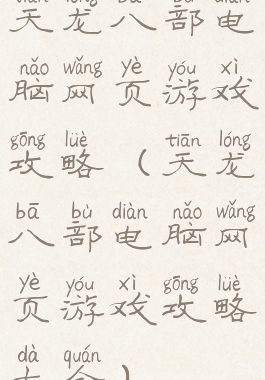 tiān lóng bā bù diàn
天龙八部电
nǎo wǎng yè yóu xì
脑网页游戏
gōng lüè tiān lóng
攻略（天龙
bā bù diàn nǎo wǎng
八部电脑网
yè yóu xì gōng lüè
页游戏攻略
dà quán
大全）